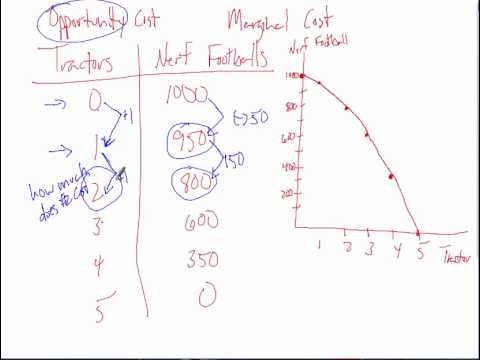 Opportunity Cost Marginal Cost
Tractors Nerf Footballs
0 1000
+1 (-)50
1 950
+1 150
how much
does the cost
2 800
3 600
4 350
5 0
Nerf Football
1000
800
600
400
200
1 2 3 4 5 Tractor